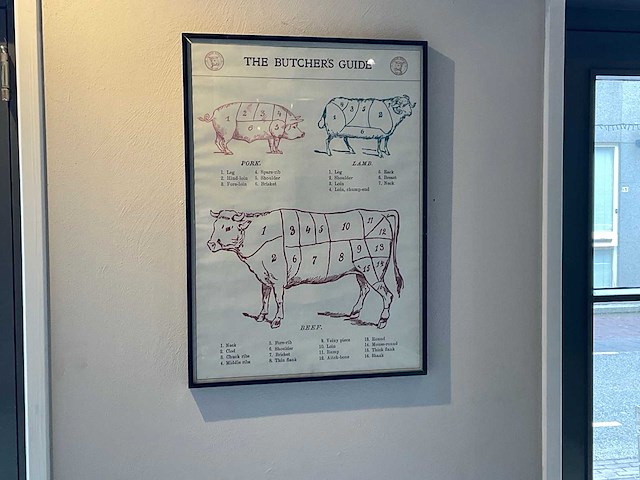 THE BUTCHER'S GUIDE
1 2 3 4
6 5
PORK.
1. Leg 4. Spare-rib
2. Hind-loin 5. Shoulder
3. Fore-loin 6. Brisket
LAMB.
1. Leg
2. Shoulder
3. Loin
4. Loin, chump-end
6. Breast
7. Neck
1 3 4 5 10 11 12
2 6 7 8 9 13
15 14
BEEF.
1. Neck
2. Clod
3. Chuck ribs
4. Middle ribs
5. Fore-rib
6. Shoulder
7. Brisket
8. Thin flank
9. Veiny piece
10. Loin
11. Rump
12. Aitch-bone
13. Round
14. Mouse-round
15. Thick flank
16. Shank